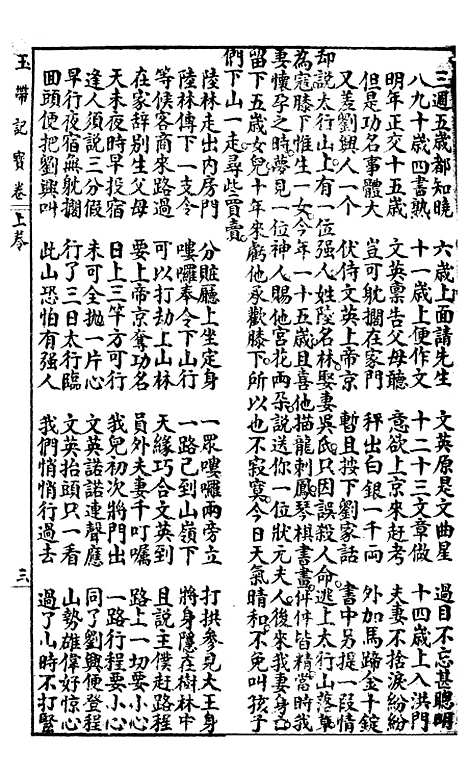 三週五歲都知曉 六歲上面請先生 文英原是文曲星 過目不忘甚聰明
八九十歲四書熟 十一歲上便作文 十二十三文章做 十四歲上入洪門
明年正交十五歲 文英禀告父母聽 意欲上京來赶考 夫妻不捨淚紛紛
但是功名事體大 豈可躭擱在家門 秤出白銀一千兩 外加馬蹄金十錠
又差劉興人一个 伏侍文英上帝京 暫且按下劉家話 書中另提一段情
却說太行山上有一位强人姓陸名林娶妻吳氏只因誤殺人命逃上太行山落草
為寇膝下惟生一女今年一十五歲且喜他描龍刺鳳琴棋書畫件件皆精當時我
妻懷孕之時夢見一位神人賜他宮花兩朶說送你一位狀元夫人後來我妻身亡
留下五歲女兒十年來虧他承歡膝下所以也不寂寞今日天氣晴和不免叫孩子
們下山一走尋些買賣
陸林走出內房門 分賍廳上坐定身 一眾嘍囉兩旁立 打拱參見大王身
陸林傳下一支令 嘍囉奉令下山行 一路已到山嶺下 將身隱在樹林中
等候客商來路過 可以打劫上山林 天緣巧合文英到 且說主僕赶路程
在家辞别生父母 要上帝京奪功名 員外夫妻千叮囑 路上一切要小心
天未夜時早投宿 日上三竿方可行 我兒初次將門出 一路行程要小心
逢人須說三分假 未可全抛一片心 文英諾諾連聲應 同了劉興便登程
早行夜宿無躭擱 行了三日太行臨 文英抬頭只一看 山勢雄偉好惊心
回頭便把劉興叫 此山恐怕有强人 我們悄悄行過去 過了山時不打緊
玉帶記寶卷 上卷 三